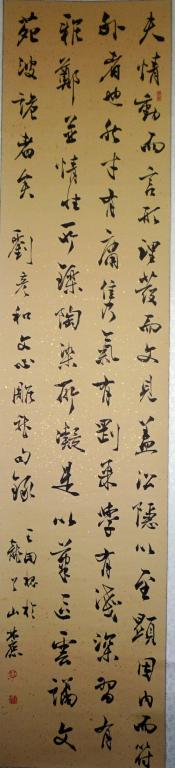 夫情動而言形理發而文見蓋沿隱以至顯因內而符
外者也然才有庸儁氣有剛柔學有淺深習有
雅鄭並情性所鑠陶染所凝是以筆區雲譎文
苑波詭者矣 劉彥和文心雕龍句錄
山